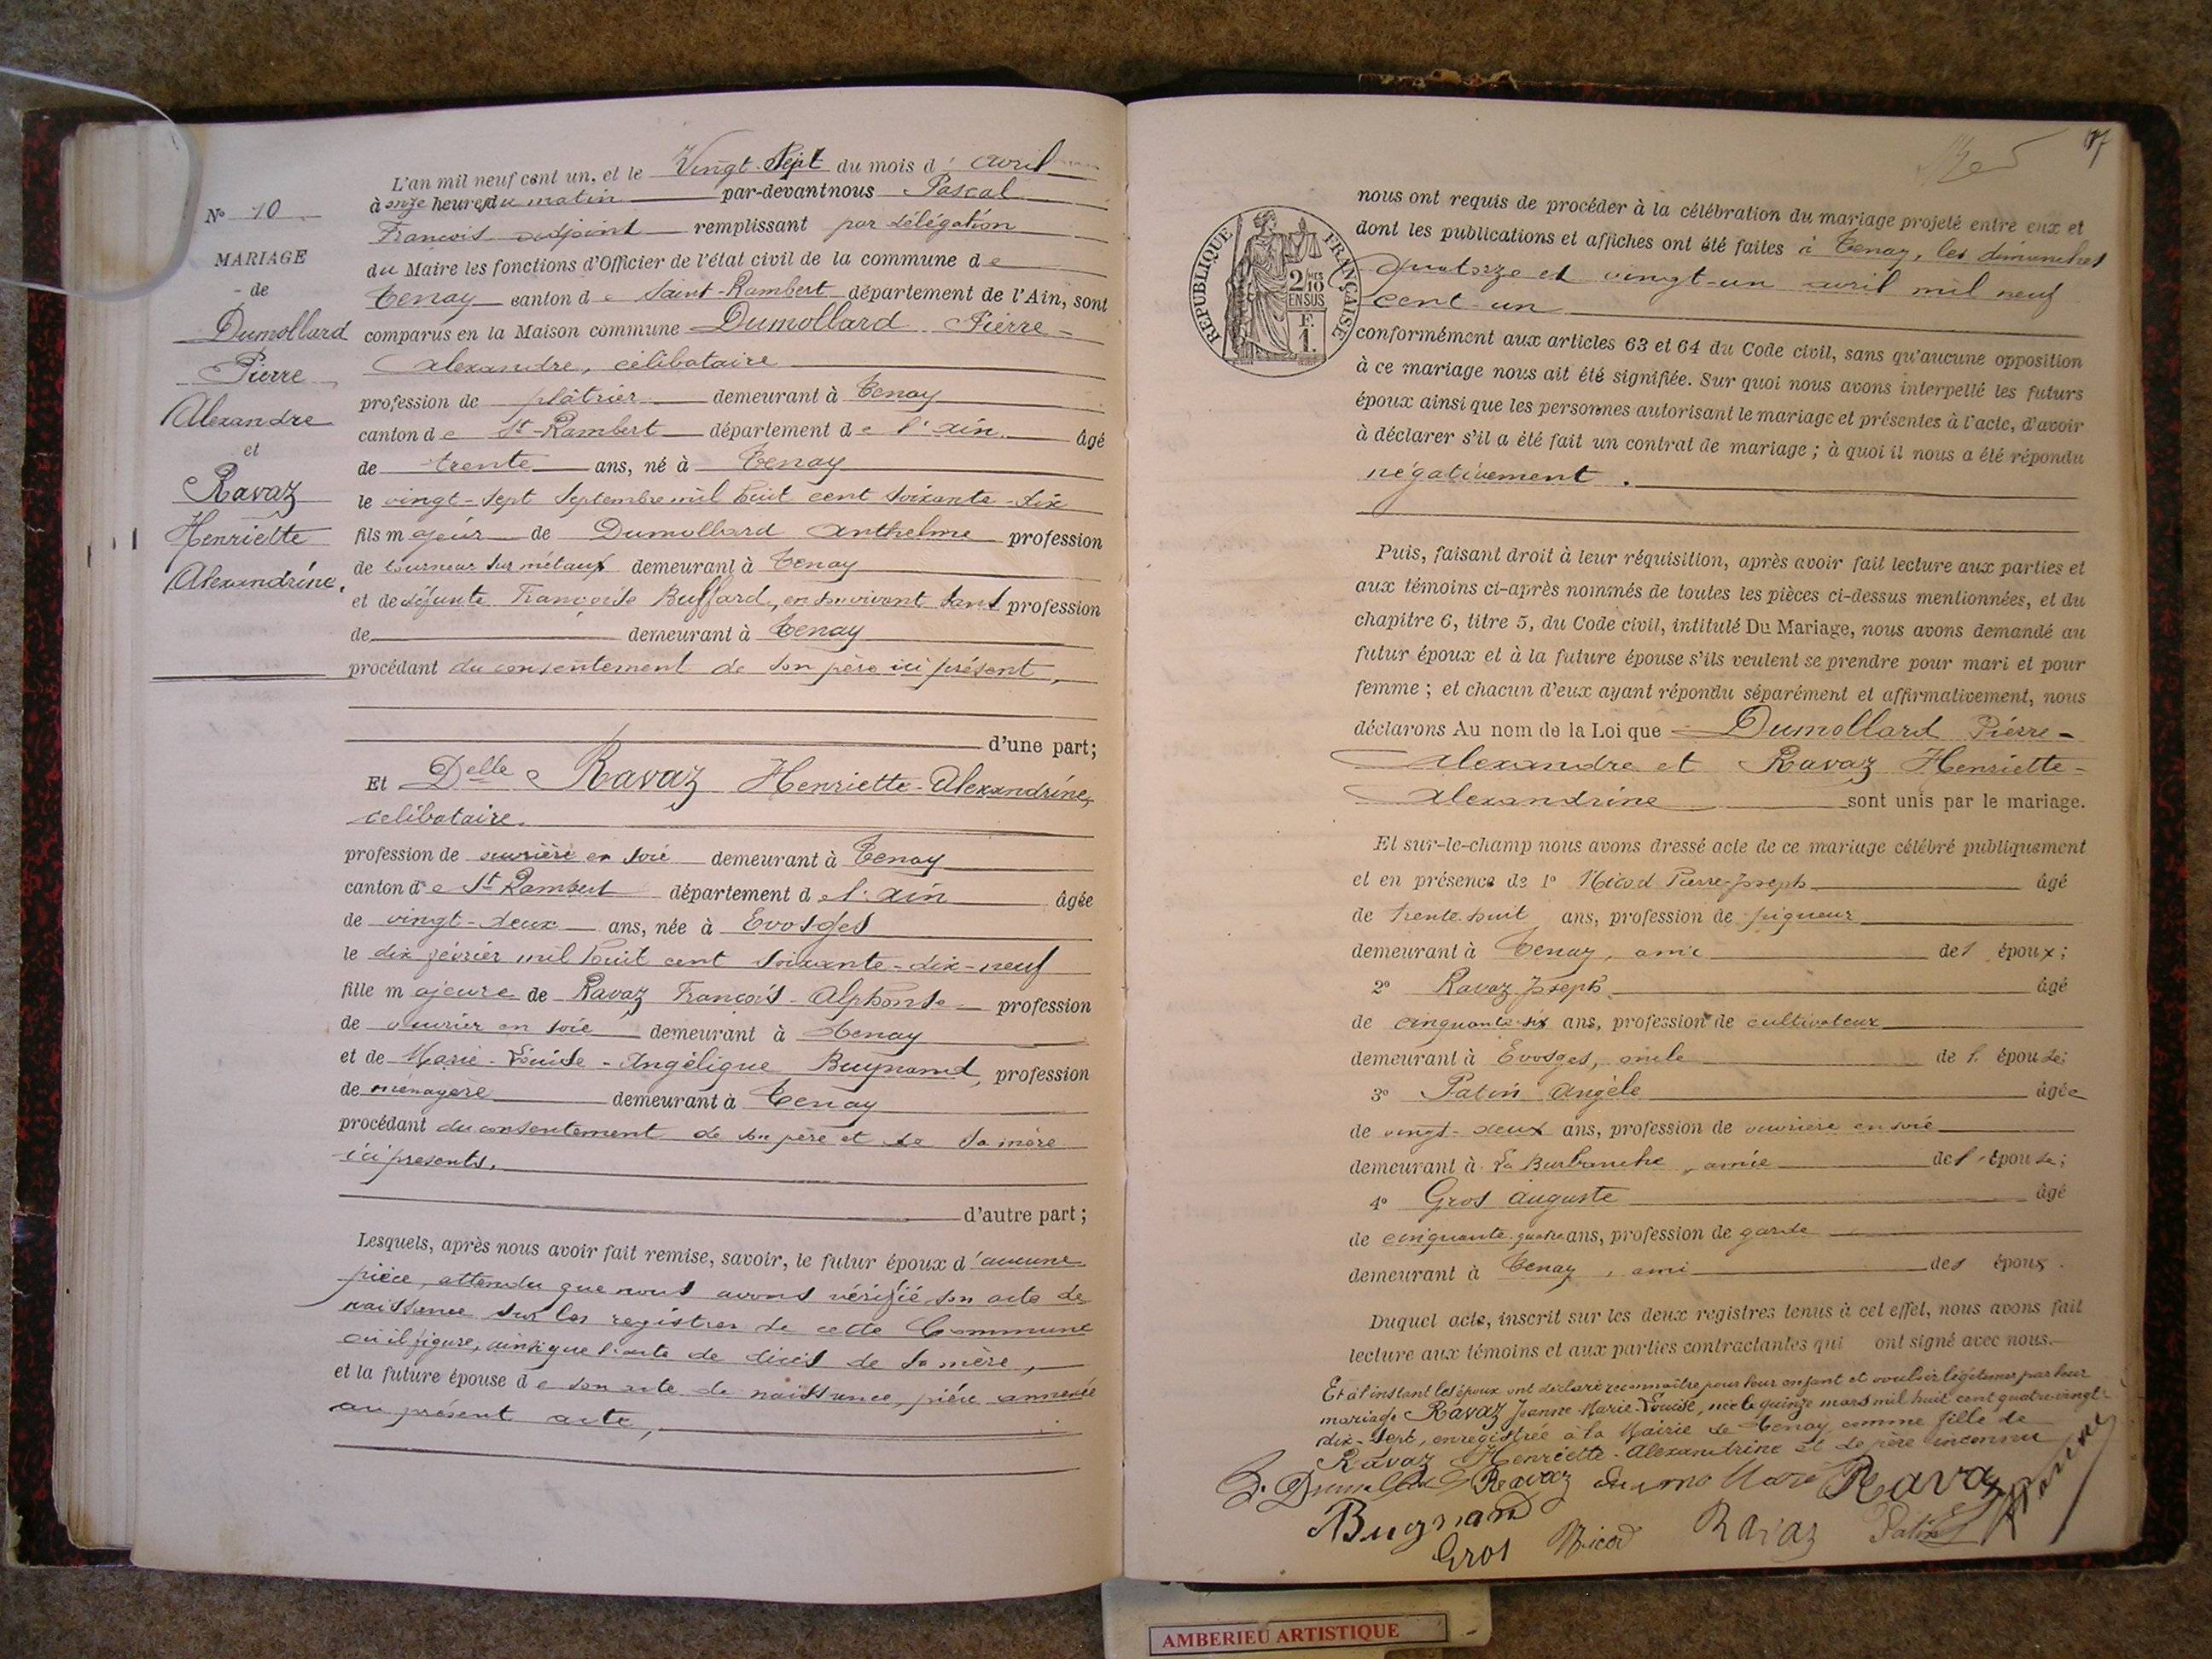 L'an mil neuf cent un, et le Vingt-Sept du mois d'avril
à onze heures du matin par-devant nous Pascal
François adjoint remplissant par délégation
du Maire les fonctions d'Officier de l'état civil de la commune de
Tenay canton de Saint-Rambert département de l'Ain, sont
comparus en la Maison commune Dumollard Pierre-
Alexandre, célibataire
profession de plâtrier demeurant à Tenay
canton de St-Rambert département de l'Ain âgé
de trente ans, né à Tenay
le vingt-sept Septembre mil huit cent soixante-dix
fils majeur de Dumollard Anthelme profession
de tourneur sur métaux demeurant à Tenay
et de défunte Françoise Buffard, en son vivant sans profession
de demeurant à Tenay
procédant du consentement de son père ici présent,
d'une part;
Et Delle Ravaz Henriette-Alexandrine,
célibataire.
profession de ouvrière en soie demeurant à Tenay
canton de St Rambert département de l'Ain âgée
de vingt-deux ans, née à Evosges
le dix février mil huit cent soixante-dix-neuf
fille majeure de Ravaz François-Alphonse profession
de ouvrier en soie demeurant à Tenay
et de Marie-Louise-Angélique Buynand, profession
de ménagère demeurant à Tenay
procédant du consentement de son père et de sa mère
ici présents.
d'autre part;
Lesquels, après nous avoir fait remise, savoir, le futur époux d'aucune
pièce, attendu que nous avons vérifié son acte de
naissance sur les registres de cette Commune
où il figure, ainsi que l'acte de décès de sa mère,
et la future épouse de son acte de naissance, pièce annexée
au présent acte,
No 10
MARIAGE
de
Dumollard
Pierre
Alexandre
et
Ravaz
Henriette
Alexandrine.
RÉPUBLIQUE FRANÇAISE
2/10
EN SUS
F.
1.
nous ont requis de procéder à la célébration du mariage projeté entre eux et
dont les publications et affiches ont été faites à Tenay, les dimanches
quatorze et vingt-un avril mil neuf
cent-un
conformément aux articles 63 et 64 du Code civil, sans qu'aucune opposition
à ce mariage nous ait été signifiée. Sur quoi nous avons interpellé les futurs
époux ainsi que les personnes autorisant le mariage et présentes à l'acte, d'avoir
à déclarer s'il a été fait un contrat de mariage; à quoi il nous a été répondu
négativement.
Puis, faisant droit à leur réquisition, après avoir fait lecture aux parties et
aux témoins ci-après nommés de toutes les pièces ci-dessus mentionnées, et du
chapitre 6, titre 5, du Code civil, intitulé Du Mariage, nous avons demandé au
futur époux et à la future épouse s'ils veulent se prendre pour mari et pour
femme; et chacun d'eux ayant répondu séparément et affirmativement, nous
déclarons Au nom de la Loi que Dumollard Pierre-
Alexandre et Ravaz Henriette-
Alexandrine sont unis par le mariage.
Et sur-le-champ nous avons dressé acte de ce mariage célébré publiquement
et en présence de 1o Nicod Pierre-Joseph âgé
de trente-huit ans, profession de piqueur
demeurant à Tenay, ami de l'époux;
2o Ravaz Joseph âgé
de cinquante-six ans, profession de cultivateur
demeurant à Evosges, oncle de l'épouse;
3o Patin Angèle âgée
de vingt-deux ans, profession de ouvrière en soie
demeurant à La Burbanche, amie de l'épouse;
4o Gros Auguste âgé
de cinquante-quatre ans, profession de garde
demeurant à Tenay, ami des époux.
Duquel acte, inscrit sur les deux registres tenus à cet effet, nous avons fait
lecture aux témoins et aux parties contractantes qui ont signé avec nous.
Et à l'instant les époux ont déclaré reconnaître pour leur enfant et vouloir légitimer par leur
mariage Ravaz Jeanne-Marie-Louise, née le quinze mars mil huit cent quatre-vingt-
dix-sept, enregistrée à la Mairie de Tenay comme fille de
Ravaz Henriette-Alexandrine et de père inconnu
Ravaz Dumollard Ravaz
Bugnand
Gros Nicod Ravaz Patin
AMBERIEU ARTISTIQUE